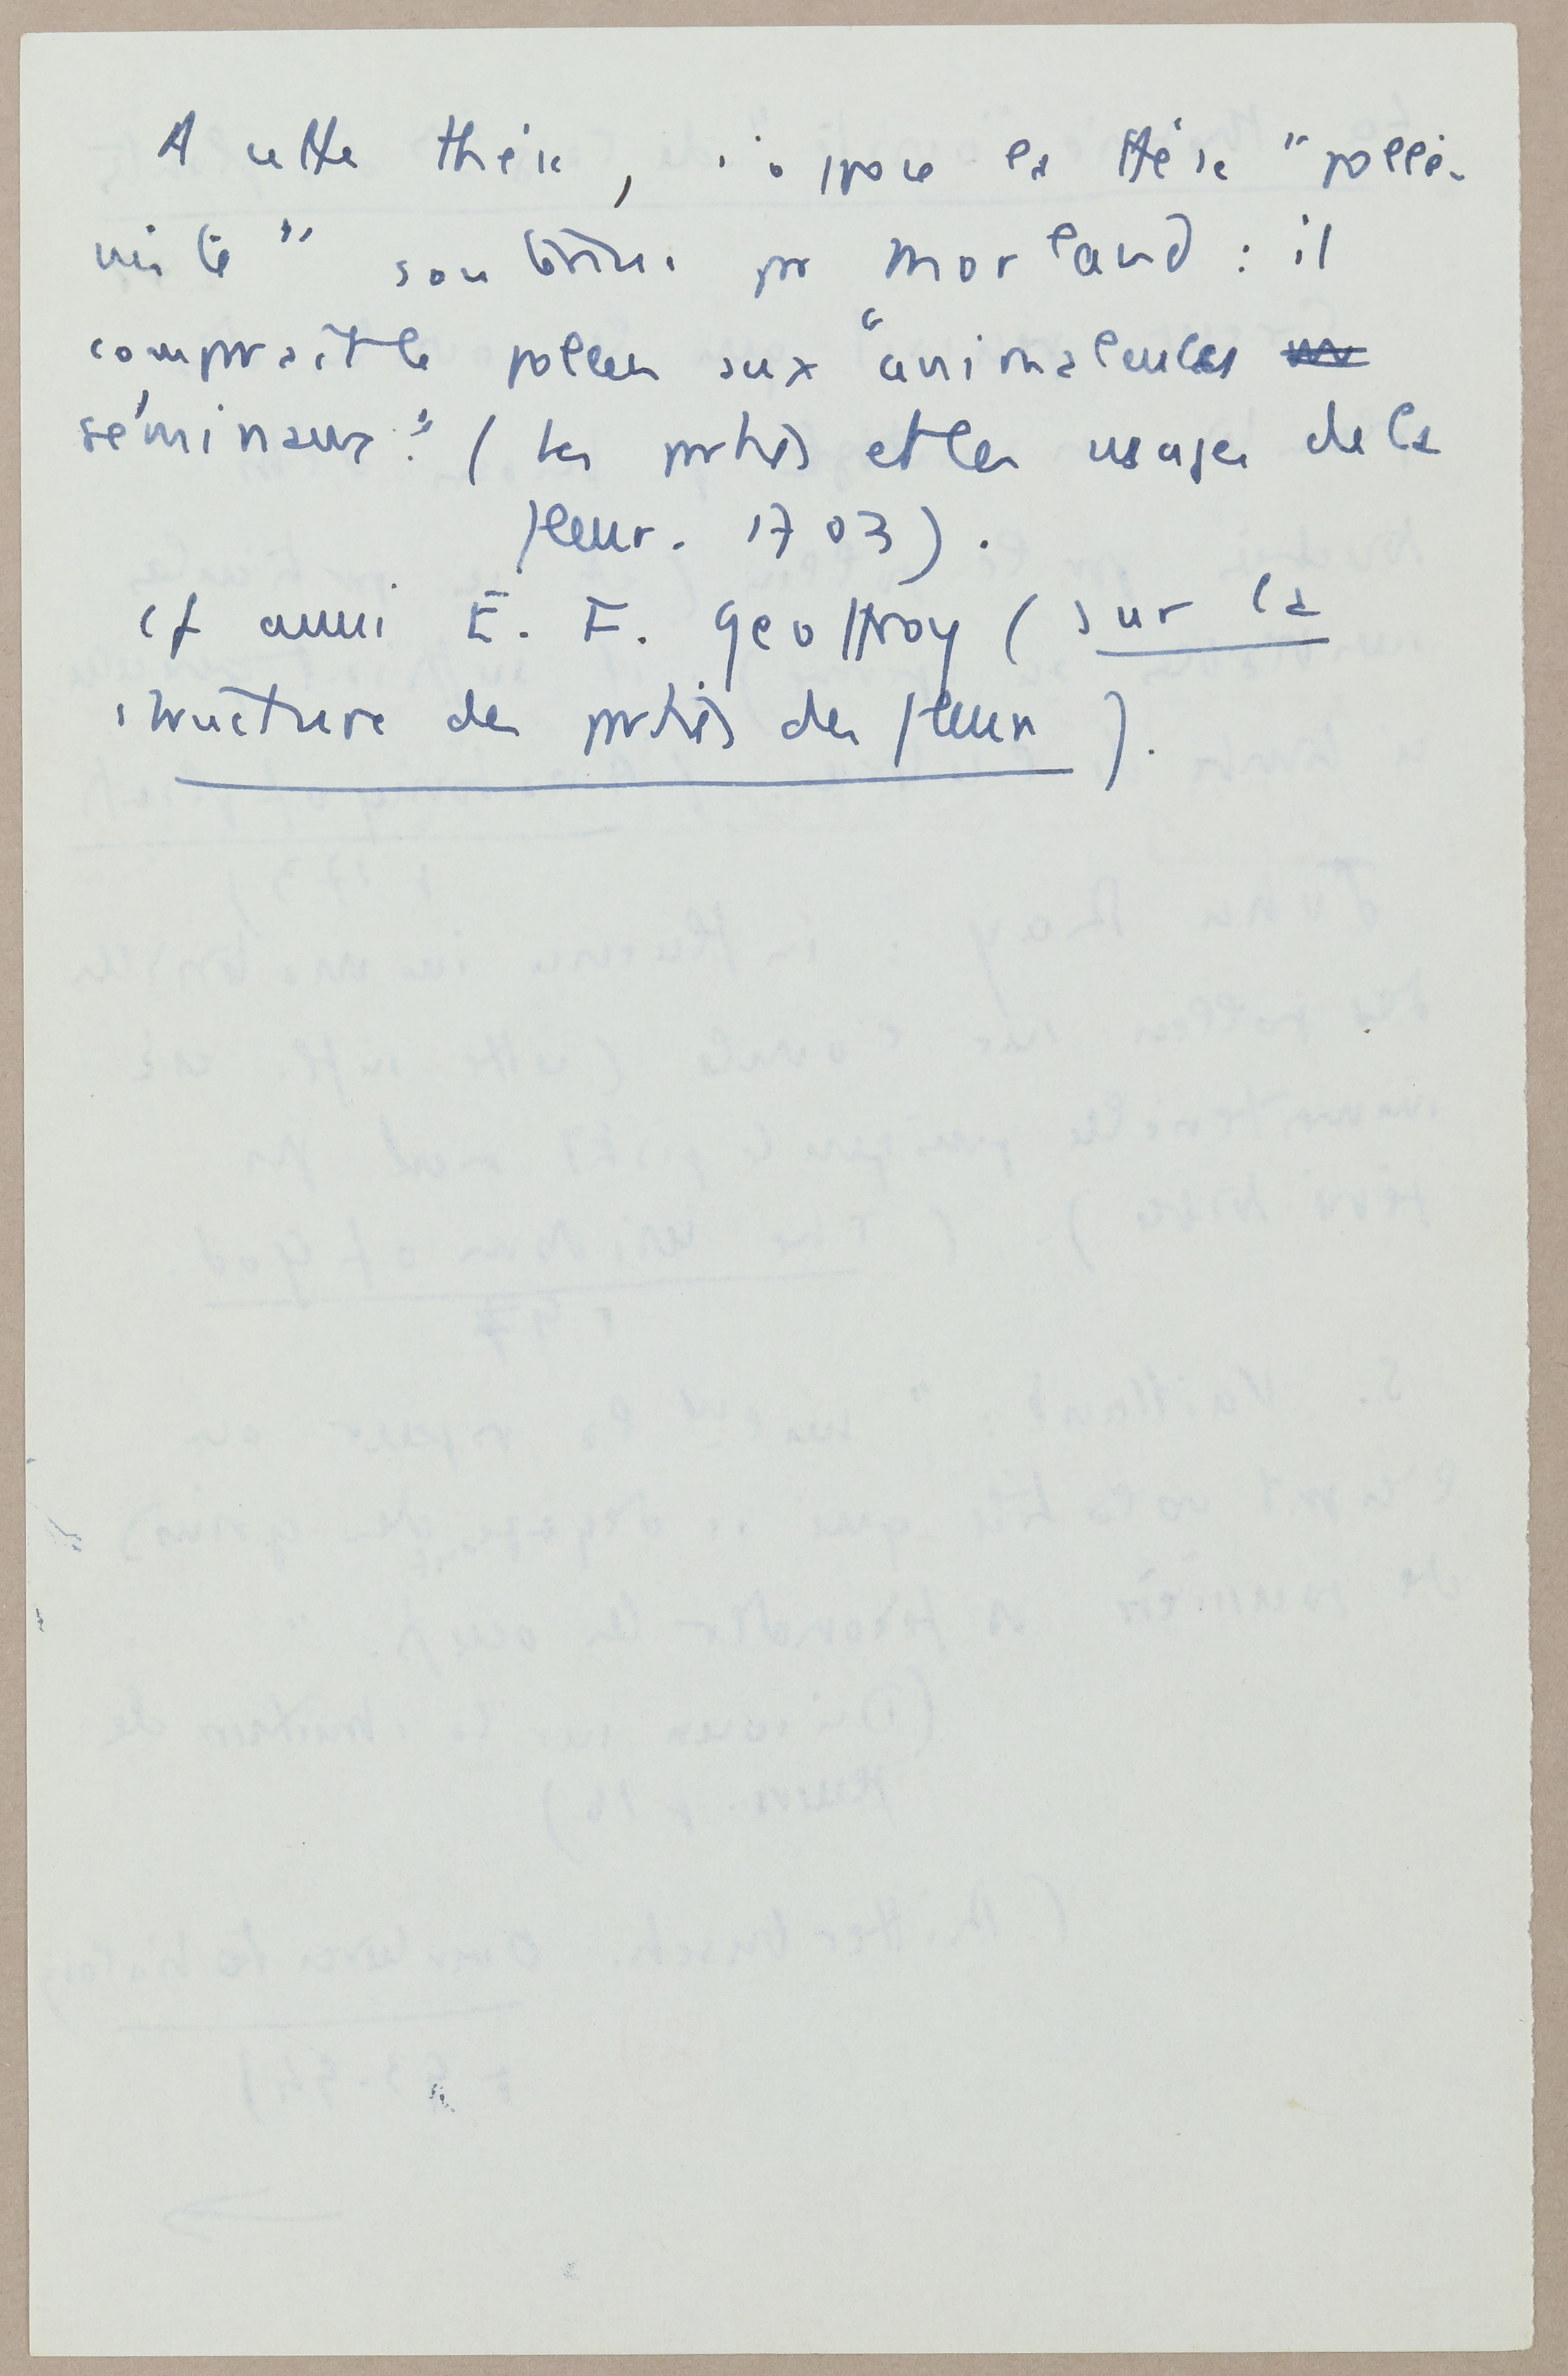 A cette thèse, s'oppose la thèse "polli-
niste" soutenue par Morland : il
comparait le pollen aux "animalcules
séminaux" (Les parties et les usages de la
fleur. 1703).
cf aussi E. F. Geoffroy (sur la
structure des parties des fleurs).